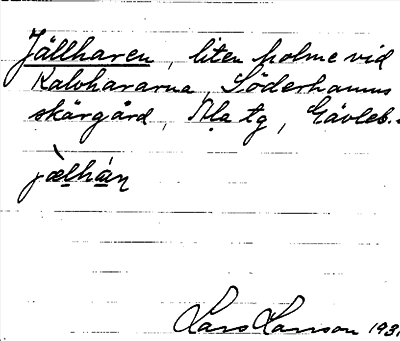 Jällharen, liten holme vid
Kalvhararna, Söderhamns
skärgård, Ala tg, Gävleb.
jælhán
Lars Larsson 1931